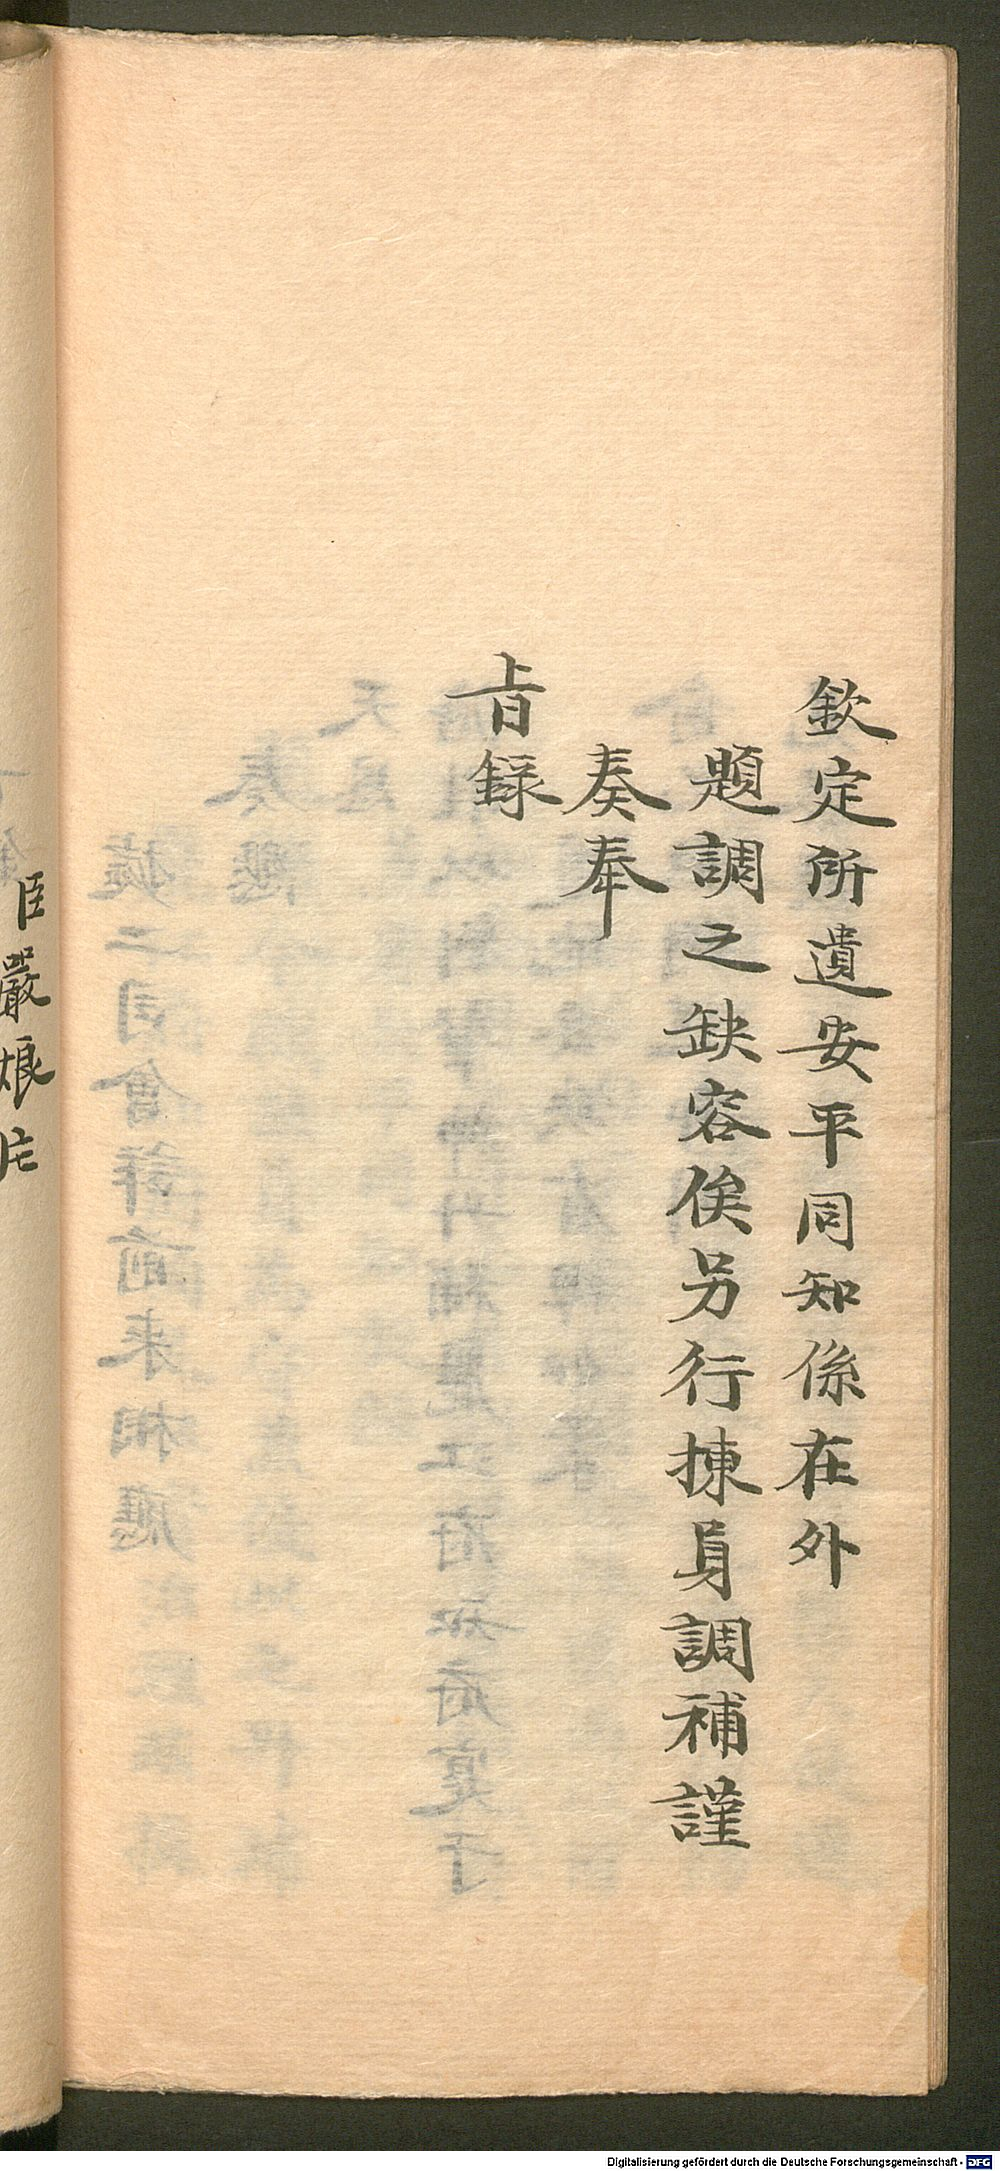 欽定所遺安平同知係在外
題調之缺容俟另行揀員調補謹
奏奉
旨錄
臣嚴烺片
Digitalisierung gefördert durch die Deutsche Forschungsgemeinschaft - DFG